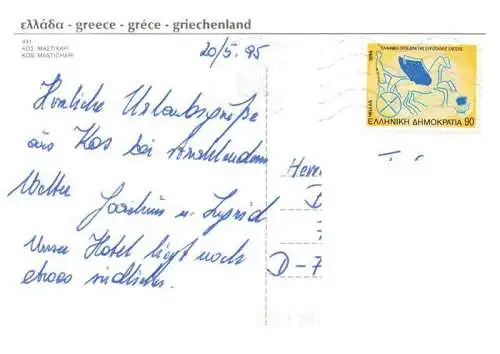 ελλάδα - greece - gréce - griechenland
491
ΚΩΣ: ΜΑΣΤΙΧΑΡΙ
KOS: MASTICHARI
20/5. 95
Herzliche Urlaubsgrüße
aus Kos bei strahlendem
Wetter
Joachim u. Ingrid
Unser Hotel liegt noch
etwas südlicher.
ΕΛΛΗΝΙΚΗ ΠΡΟΕΔΡΙΑ ΤΗΣ ΕΥΡΩΠΑΪΚΗΣ ΕΝΩΣΗΣ
HELLAS
ΕΛΛΗΝΙΚΗ ΔΗΜΟΚΡΑΤΙΑ 90
Herrn
D
D-7